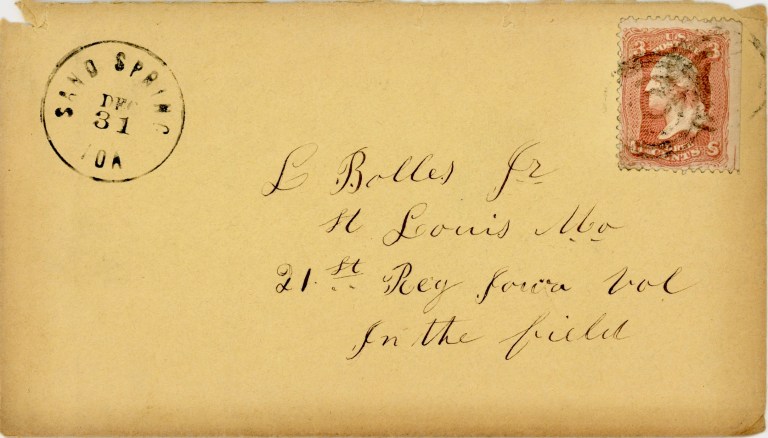 SAND SPRING
DEC
31
IOA
3 U.S. 3
CENTS
L Bolles Jr
St Louis Mo
21st Reg Iowa Vol
In the field